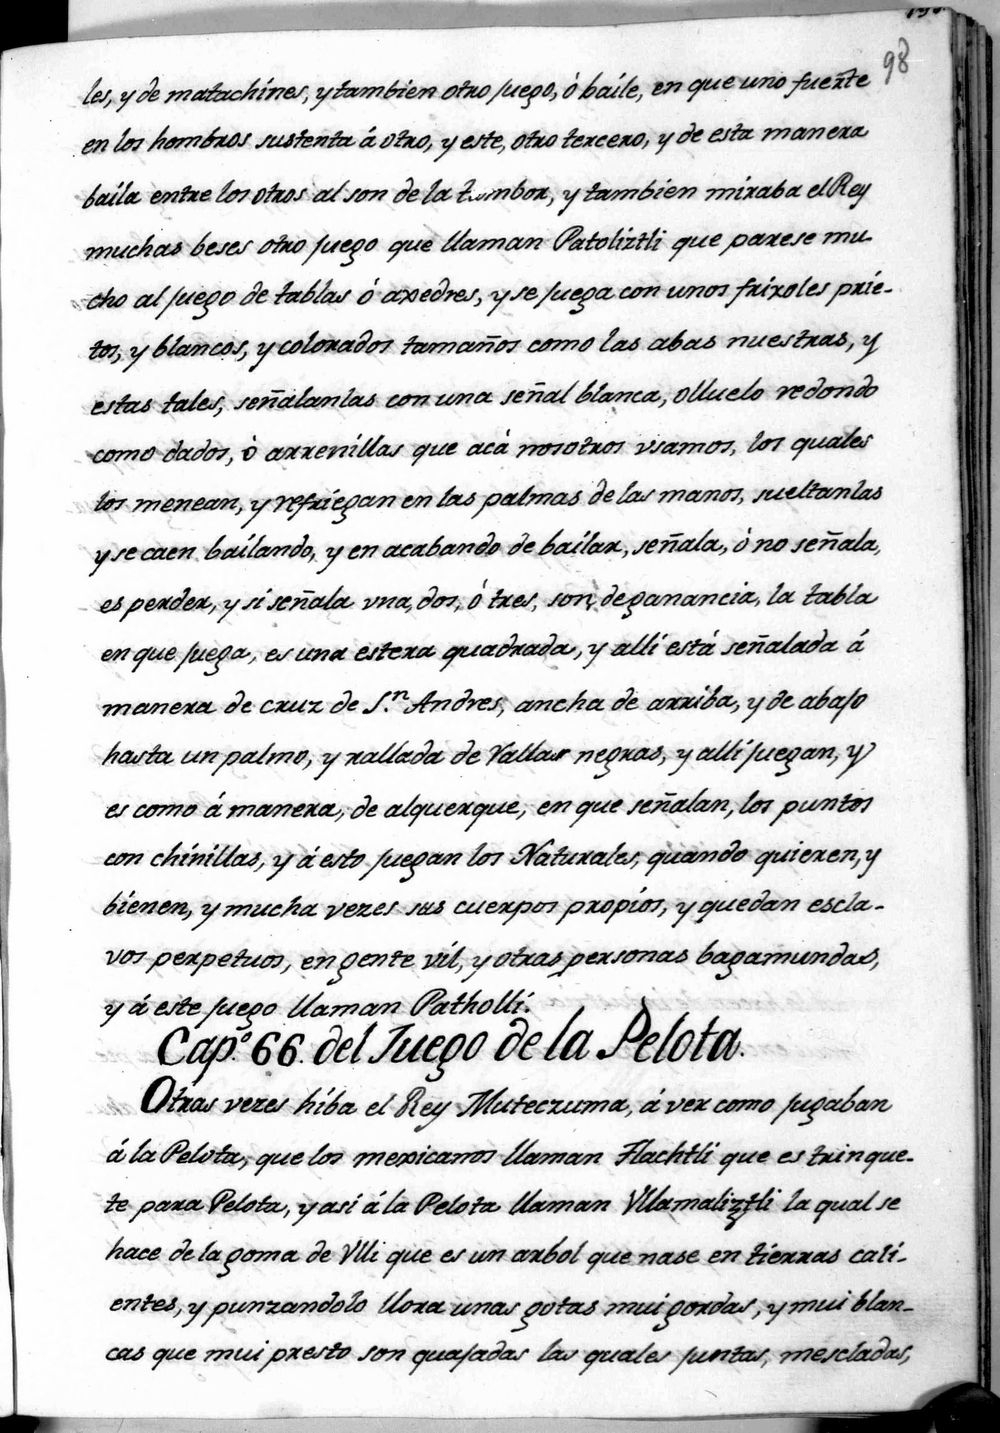 98
les, y de matachines, y tambien otro juego, ó baile, en que uno fuerte
en los hombros sustenta á otro, y este, otro tercero, y de esta manera
baila entre los otros al son de la tambor, y tambien miraba el Rey
muchas beses otro juego que llaman Patoliztli que parese mu-
cho al juego de tablas ó axedres, y se juega con unos frixoles prie-
tos, y blancos, y colorados tamaños como las abas nuestras, y
estas tales, señalanlas con una señal blanca, olluelo redondo
como dados, ò arrenillas que acá nosotros vsamos, los quales
los menean, y refriegan en las palmas de las manos, sueltanlas
y se caen bailando, y en acabando de bailar, señala, ó no señala,
es perder, y si señala vna, dos, ó tres, son, de ganancia, la tabla
en que juega, es una estera quadrada, y alli está señalada á
manera de cruz de S.n Andres, ancha de arriba, y de abajo
hasta un palmo, y rallada de Vallas negras, y alli juegan, y
es como á manera, de alquerque, en que señalan, los puntos
con chinillas, y á esto juegan los Naturales, quando quieren, y
bienen, y mucha vezes sus cuerpos propios, y quedan escla-
vos perpetuos, en gente vil, y otras personas bagamundas,
y á este juego llaman Patholli.
Cap.o 66. del Juego de la Pelota.
Otras vezes hiba el Rey Muteczuma, á ver como jugaban
á la Pelota, que los mexicanos llaman Tlachtli que es trinque-
te para Pelota, y asi á la Pelota llaman Vllamaliztli la qual se
hace de la goma de Vlli que es un arbol que nase en tierras cali-
entes, y punzandolo llora unas gotas mui gordas, y mui blan-
cas que mui presto son quajadas las quales juntas, mescladas,